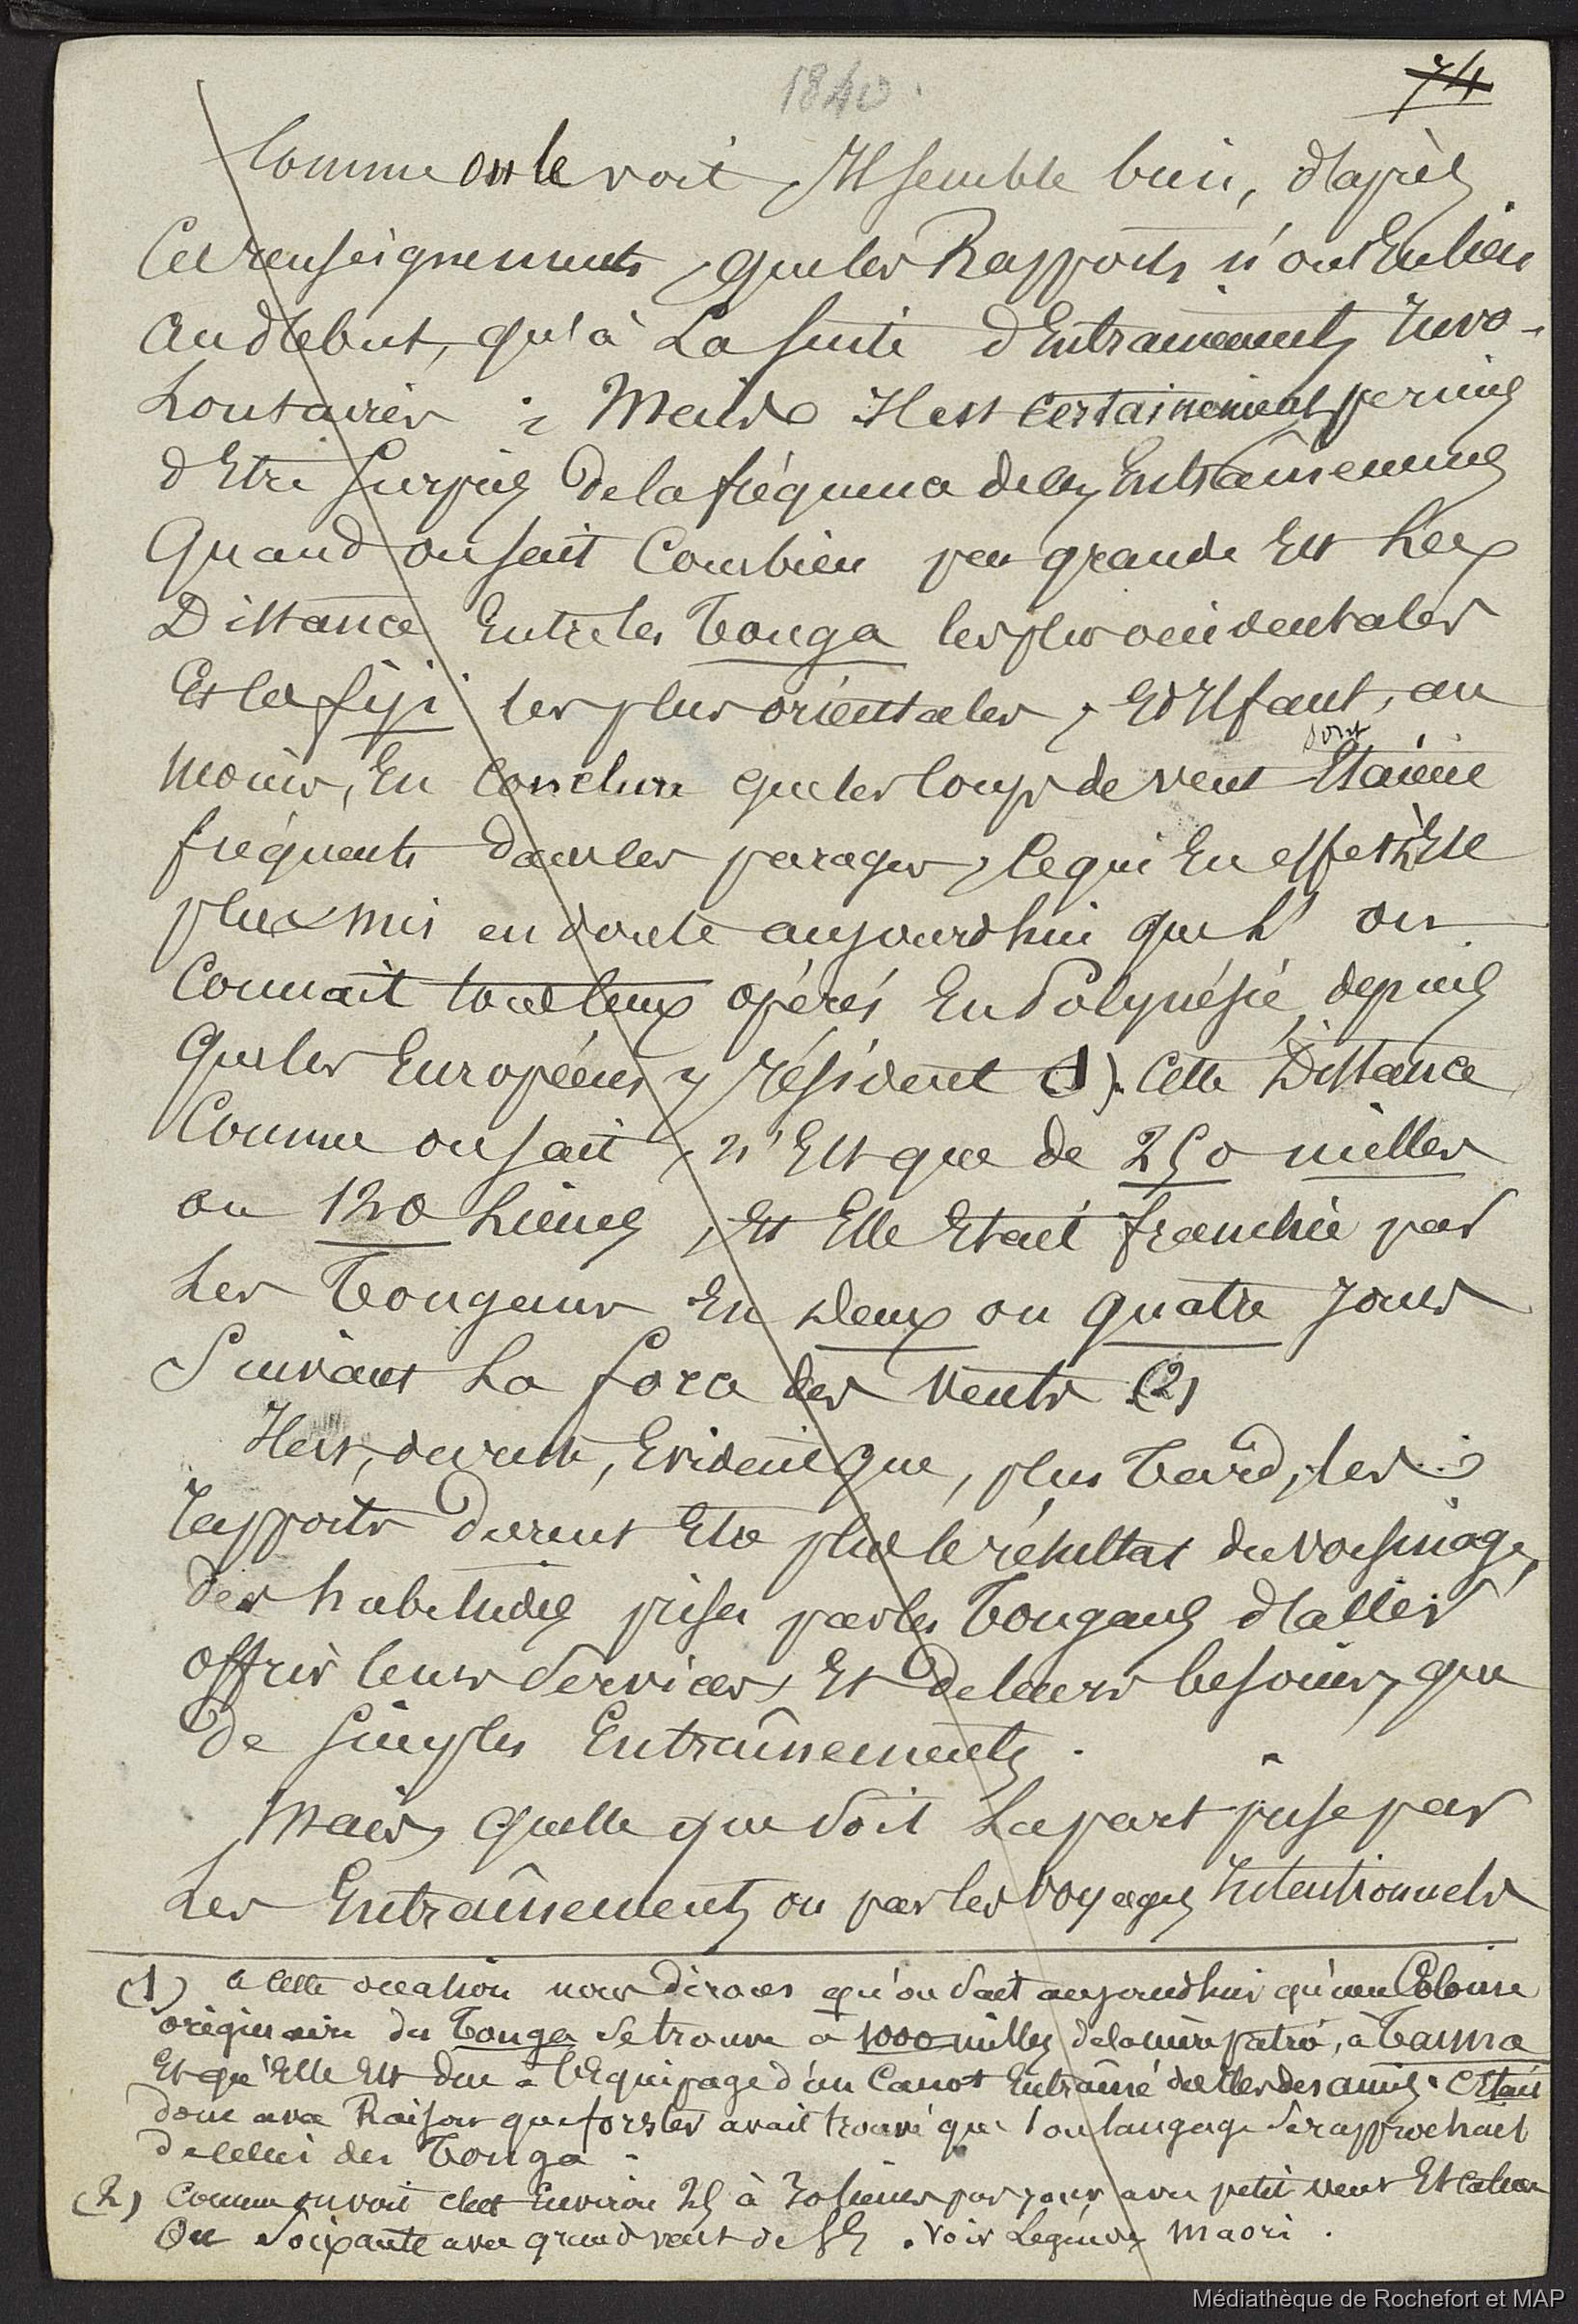 1840.
74
Comme on le voit, Il semble bien, d'après
Ces renseignements, que les Rapports n'ont Eu lieu
au début, qu'à La suite d'Entrainements Invo-
Lontaires ; Mais Il est certainement permis
d'Etre surpris De la fréquence de ces Entraînements
Quand on sait Combien peu grande Est La
Distance Entre les Tonga les plus occidentales
Et les fiji les plus orientales, Et Il faut, au
moins, En Conclure que les Coups de vent Etaient
sont
fréquents dans les parages, Ce qui En effet n'Est
plus mis en doute aujourd'hui que L'on
Connait tous ceux opérés En Polynésie, depuis
Que les Européens y résident (1). Cette Distance
Comme on sait, n'Est que de 250 milles
ou 120 Lieues, Et Elle Etait franchie par
Les Tongans En deux ou quatre Jours
Suivant La force des Vents (2)
Il est, du reste, Evident que, plus Tard, les
rapports durent Etre plus le résultat du voisinage,
des habitudes prises par les Tongans d'aller
offrir leurs Services, Et De leurs besoins, que
De simples Entraînements.
Mais, Quelle que Soit La part prise par
Les Entraînements ou par les Voyages Intentionnels
(1) à Cette occasion nous dirons qu'on Sait aujourd'hui qu'une Colonie
originaire des Tonga Se trouve à 1000 milles de la mère patrie, à Tanna
Et qu'Elle Est due à l'Equipage d'un Canot Entraîné des Iles des amis. C'Etait
donc avec Raison que forster avait trouvé que Son langage Se rapprochait
de Celui des Tonga.
(2) Comme on voit c'est Environ 25 à 30 lieues par jour avec petit vent Et
Ou Soixante avec grand vent de SE. Voir Légendes Maori.
Médiathèque de Rochefort et MAP